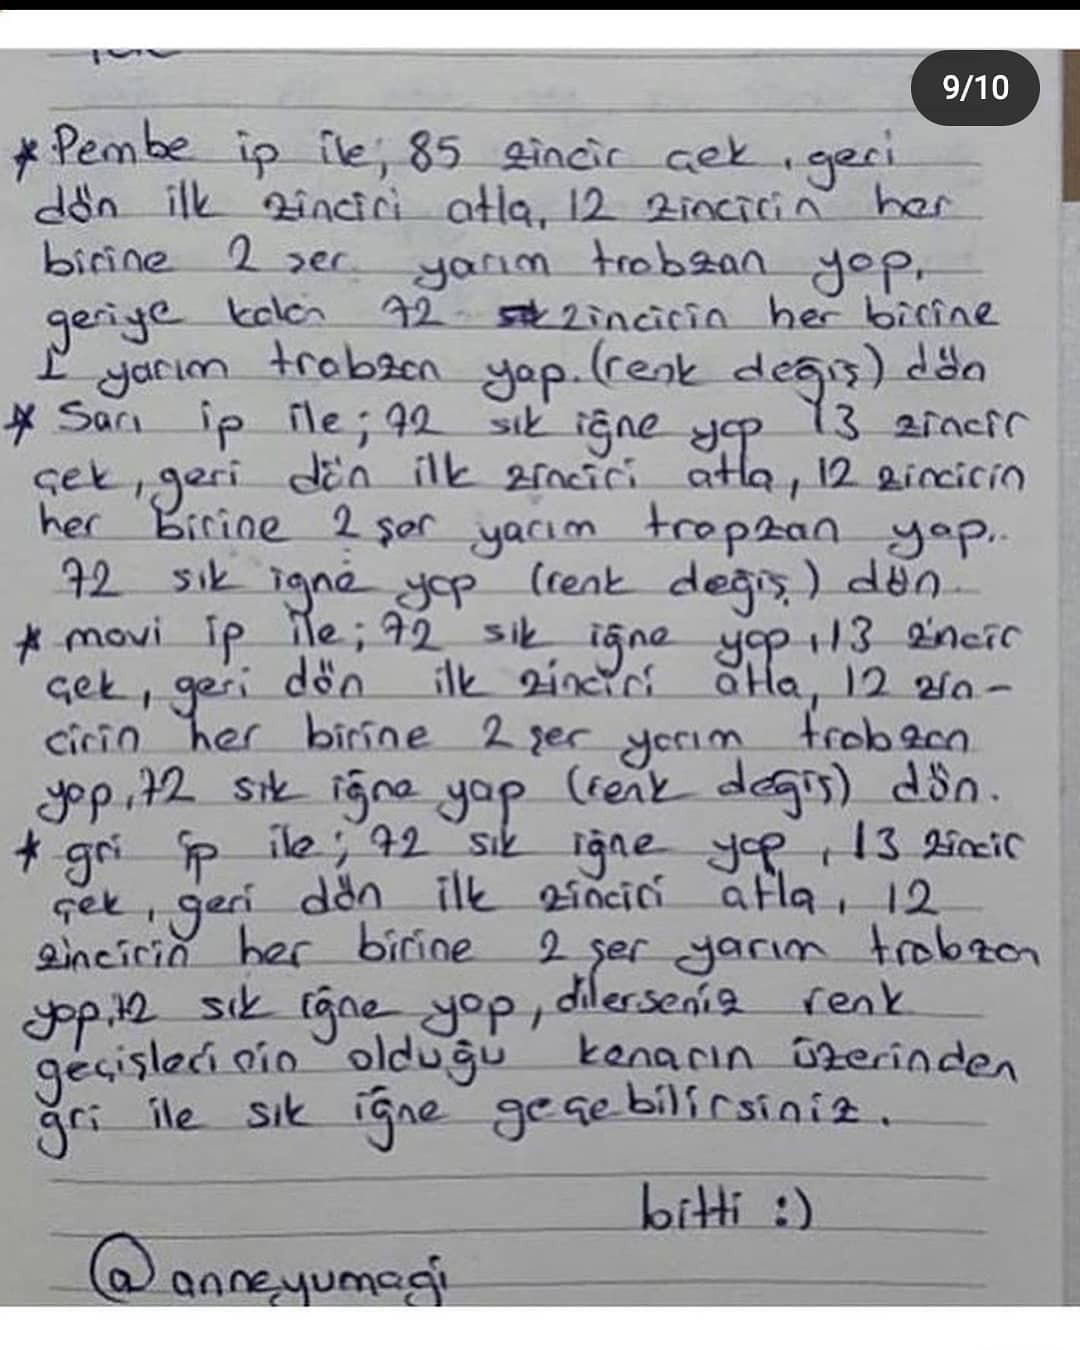 9/10
* Pembe ip ile; 85 zincir çek, geri
dön ilk zinciri atla, 12 zincirin her
birine 2 şer yarım trobzan yap,
geriye kalan 72 zincirin her birine
1 yarım trabzan yap. (renk değiş) dön
* Sarı ip ile; 72 sık iğne yap 13 zincir
çek, geri dön ilk zinciri atla, 12 zincirin
her birine 2 şer yarım tropzan yap.
72 sık iğne yap (renk değiş) dön.
* mavi ip ile; 72 sık iğne yap, 13 zincir
çek, geri dön ilk zinciri atla, 12 zin-
cirin her birine 2 şer yarım trobzan
yap, 72 sık iğne yap (renk değiş) dön.
* gri ip ile; 72 sık iğne yap, 13 zincir
çek, geri dön ilk zinciri atla, 12
zincirin her birine 2 şer yarım trobzan
yap, 72 sık iğne yap, dilerseniz renk
geçişlerinin olduğu kenarın üzerinden
gri ile sık iğne geçebilirsiniz.
bitti :)
@anneyumagi